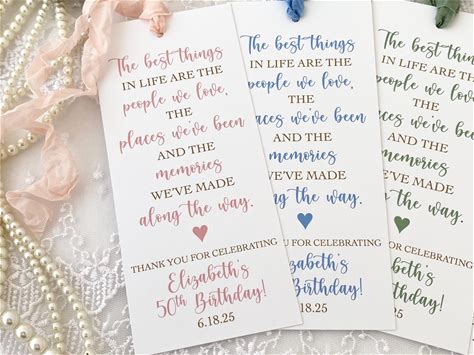 The best things
IN LIFE ARE THE
people we love,
THE
places we've been
AND THE
memories
WE'VE MADE
along the way.
THANK YOU FOR CELEBRATING
Elizabeth's
50th Birthday!
6.18.25
The best things
IN LIFE ARE THE
people we love,
THE
places we've been
AND THE
memories
WE'VE MADE
along the way.
THANK YOU FOR CELEBRATING
Elizabeth's
50th Birthday!
6.18.25
The best things
IN LIFE ARE THE
people we love,
THE
places we've been
AND THE
memories
WE'VE MADE
along the way.
THANK YOU FOR CELEBRATING
Elizabeth's
50th Birthday!
6.18.25